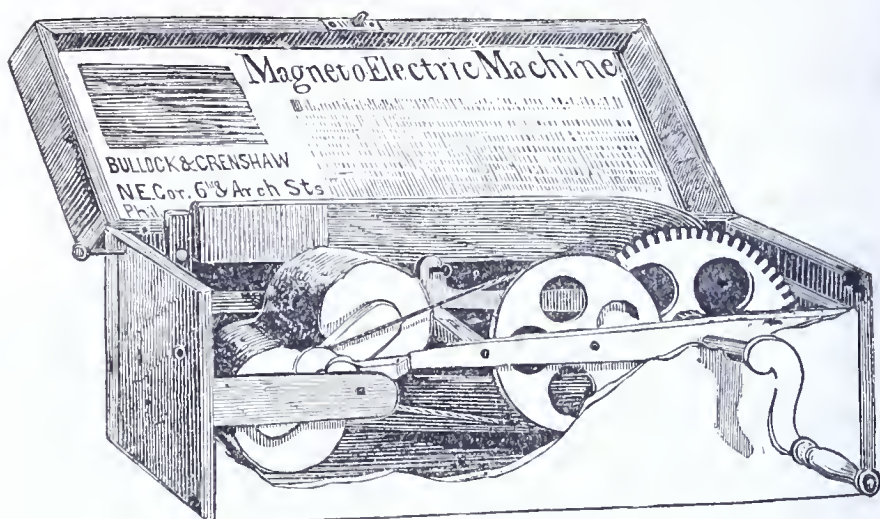 Magneto Electric Machine
BULLOCK & CRENSHAW
N.E.Cor. 6th & Arch Sts
Phil